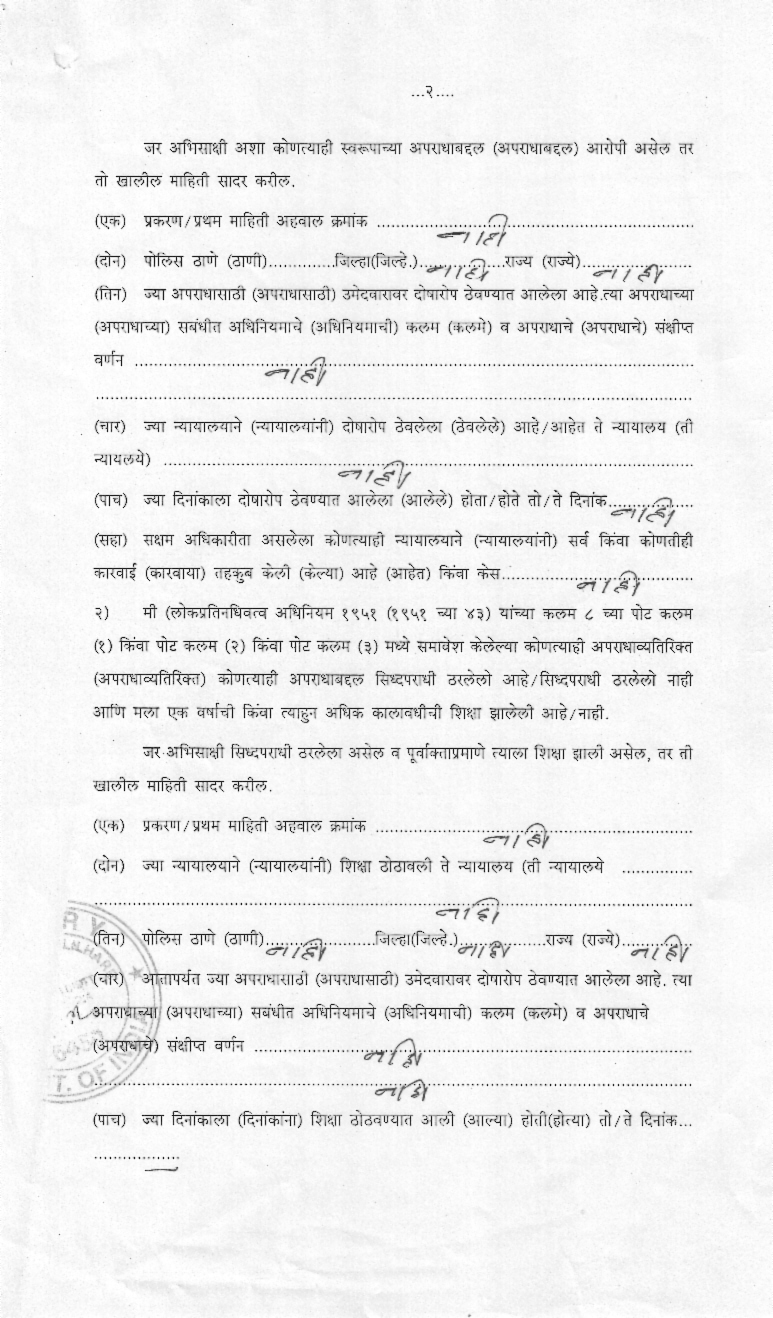 ...२....
जर अभिसाक्षी अशा कोणत्याही स्वरूपाच्या अपराधाबद्दल (अपराधाबद्दल) आरोपी असेल तर
तो खालील माहिती सादर करील.
(एक) प्रकरण/प्रथम माहिती अहवाल क्रमांक ............ नाही
(दोन) पोलिस ठाणे (ठाणी)..............जिल्हा(जिल्हे.)... नाही ...राज्य (राज्ये)... नाही
(तिन) ज्या अपराधासाठी (अपराधासाठी) उमेदवारावर दोषारोप ठेवण्यात आलेला आहे.त्या अपराधाच्या
(अपराधाच्या) सबंधीत अधिनियमाचे (अधिनियमाची) कलम (कलमे) व अपराधाचे (अपराधाचे) संक्षीप्त
वर्णन ............ नाही
(चार) ज्या न्यायालयाने (न्यायालयांनी) दोषारोप ठेवलेला (ठेवलेले) आहे/आहेत ते न्यायालय (ती
न्यायलये) ............ नाही
(पाच) ज्या दिनांकाला दोषारोप ठेवण्यात आलेला (आलेले) होता/होते तो/ते दिनांक... नाही
(सहा) सक्षम अधिकारीता असलेला कोणत्याही न्यायालयाने (न्यायालयांनी) सर्व किंवा कोणतीही
कारवाई (कारवाया) तहकुब केली (केल्या) आहे (आहेत) किंवा केस............ नाही
२) मी (लोकप्रतिनधिवत्व अधिनियम १९५१ (१९५१ च्या ४३) यांच्या कलम ८ च्या पोट कलम
(१) किंवा पोट कलम (२) किंवा पोट कलम (३) मध्ये समावेश केलेल्या कोणत्याही अपराधाव्यतिरिक्त
(अपराधाव्यतिरिक्त) कोणत्याही अपराधाबद्दल सिध्दपराधी ठरलेलो आहे/सिध्दपराधी ठरलेलो नाही
आणि मला एक वर्षाची किंवा त्याहुन अधिक कालावधीची शिक्षा झालेली आहे/नाही.
जर अभिसाक्षी सिध्दपराधी ठरलेला असेल व पूर्वाक्ताप्रमाणे त्याला शिक्षा झाली असेल, तर ती
खालील माहिती सादर करील.
(एक) प्रकरण/प्रथम माहिती अहवाल क्रमांक ............ नाही
(दोन) ज्या न्यायालयाने (न्यायालयांनी) शिक्षा ठोठावली ते न्यायालय (ती न्यायालये ...............
............ नाही
(तिन) पोलिस ठाणे (ठाणी)... नाही ...जिल्हा(जिल्हे.)... नाही ...राज्य (राज्ये)... नाही
(चार) आतापर्यत ज्या अपराधासाठी (अपराधासाठी) उमेदवारावर दोषारोप ठेवण्यात आलेला आहे. त्या
अपराधाच्या (अपराधाच्या) सबंधीत अधिनियमाचे (अधिनियमाची) कलम (कलमे) व अपराधाचे
(अपराधाचे) संक्षीप्त वर्णन ............ नाही
............ नाही
(पाच) ज्या दिनांकाला (दिनांकांना) शिक्षा ठोठवण्यात आली (आल्या) होती(होत्या) तो/ते दिनांक...
..................
T. OF INDIA